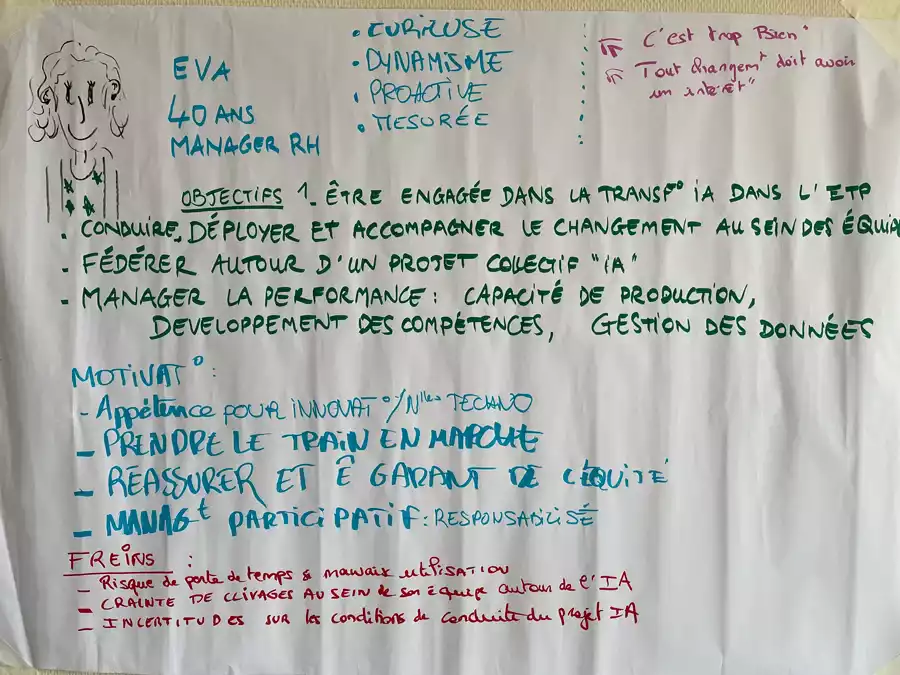 EVA
40 ANS
MANAGER RH
• CURIEUSE
• DYNAMISME
• PROACTIVE
• MESURÉE
C'est trop Bien"
Tout changemt doit avoir
un intérêt"
OBJECTIFS 1. ÊTRE ENGAGÉE DANS LA TRANSF° IA DANS L'ETP
• CONDUIRE, DÉPLOYER ET ACCOMPAGNER LE CHANGEMENT AU SEIN DES ÉQUIPE
• FÉDÉRER AUTOUR D'UN PROJET COLLECTIF "IA"
• MANAGER LA PERFORMANCE : CAPACITÉ DE PRODUCTION,
DEVELOPPEMENT DES COMPÉTENCES, GESTION DES DONNÉES
MOTIVAT° :
- Appétence POUR INNOVAT°/Nlles TECHNO
- PRENDRE LE TRAIN EN MARCHE
- RÉASSURER ET Ê GARANT DE L'ÉQUITÉ
- MANAGt PARTICIPATIF : RESPONSABILISÉ
FREINS :
- Risque de perte de temps & mauvaix utilisation
- CRAINTE DE CLIVAGES AU SEIN de son équipe autour de l'IA
- INCERTITUDES sur les conditions de conduite du projet IA